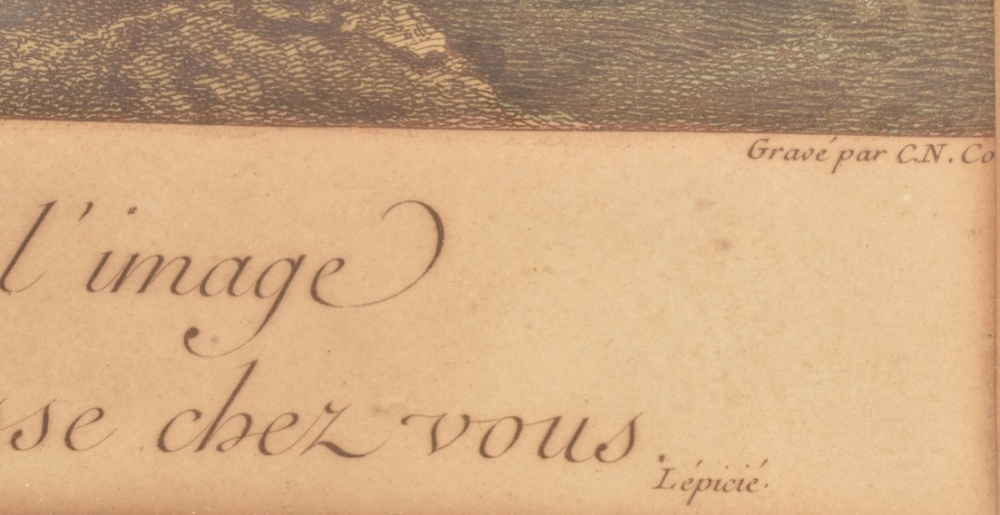 Gravé par C.N. Co
l'image
sse chez vous.
Lépicié.